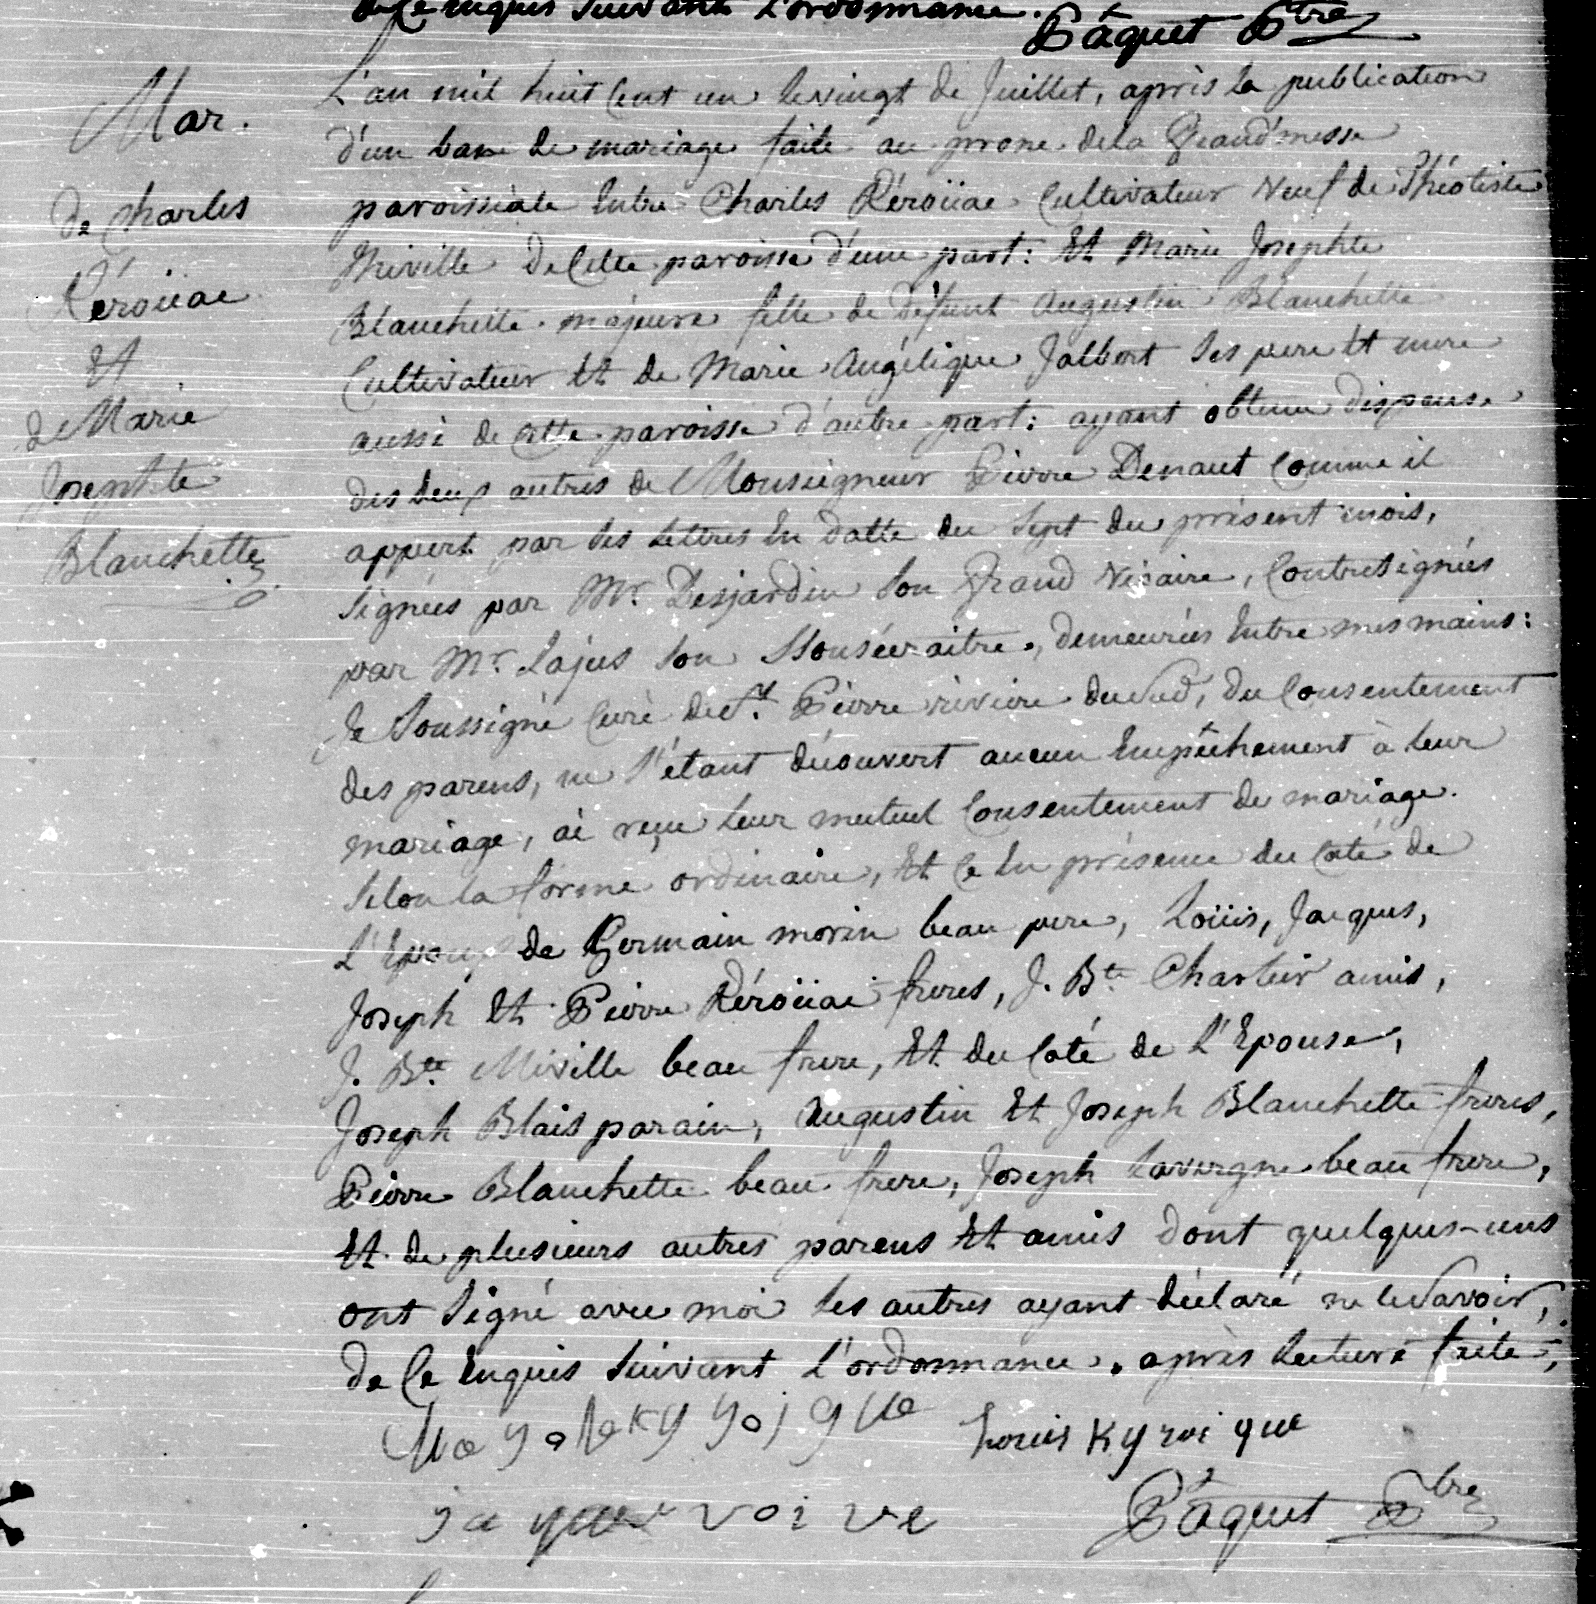 de Ce enquis Suivant L'ordonnance.
Pâquet Ptre
Mar.
de Charles
Kéroüac
Et
de Marie
Josephte
Blanchette
L'an mil huit Cent un le vingt de Juillet, après la publication
d'un ban de mariage faite au prone de la Grand'messe
paroissiale Entre Charles Kéroüac Cultivateur Veuf de Théotiste
Miville de Cette paroisse d'une part: Et Marie Josephte
Blanchette majeure fille de défunt Augustin Blanchette
Cultivateur Et de Marie Angélique Jalbert Ses pere Et mere
aussi de Cette paroisse d'autre part: ayant obtenu dispense
des deux autres de Monseigneur Pierre Denaut Comme il
appert par Ses Lettres En datte du Sept du présent mois,
Signées par Mr. Desjardin Son Grand Vicaire, Contresignées
par Mr. Lajus Son Sousécraitre, demeurées Entre mes mains:
Je Soussigné Curé de St. Pierre riviere du Sud, du Consentement
des parens, ne S'étant découvert aucun Empêchement à leur
mariage, ai reçu leur mutuel Consentement de mariage
Selon la forme ordinaire, Et Ce En présence du Coté de
L'Epoux de Germain morin beau pere, Loüis, Jacques,
Joseph Et Pierre Kéroüac freres, J. Bte Chartier amis,
J. Bte. Miville beau frere, Et du Coté de L'Epouse,
Joseph Blais parain, Augustin Et Joseph Blanchette freres,
Pierre Blanchette beau frere, Joseph Lavergne beau frere,
Et de plusieurs autres parens Et amis dont quelques-uns
ont Signé avec moi Les autres ayant déclaré ne le Savoir,
de Ce Enquis Suivant L'ordonnance. après Lecture faite,
Louis Kyroique
Pâquet Ptre